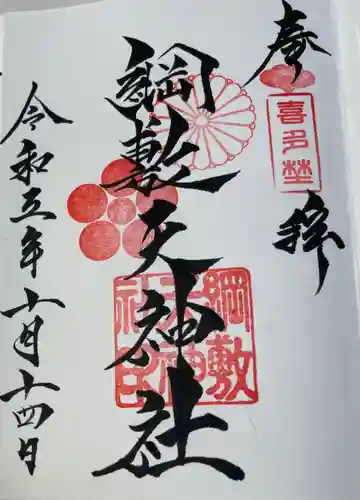 奉拝
喜多埜
綱敷天神社
綱敷天神社印
令和五年十一月十四日